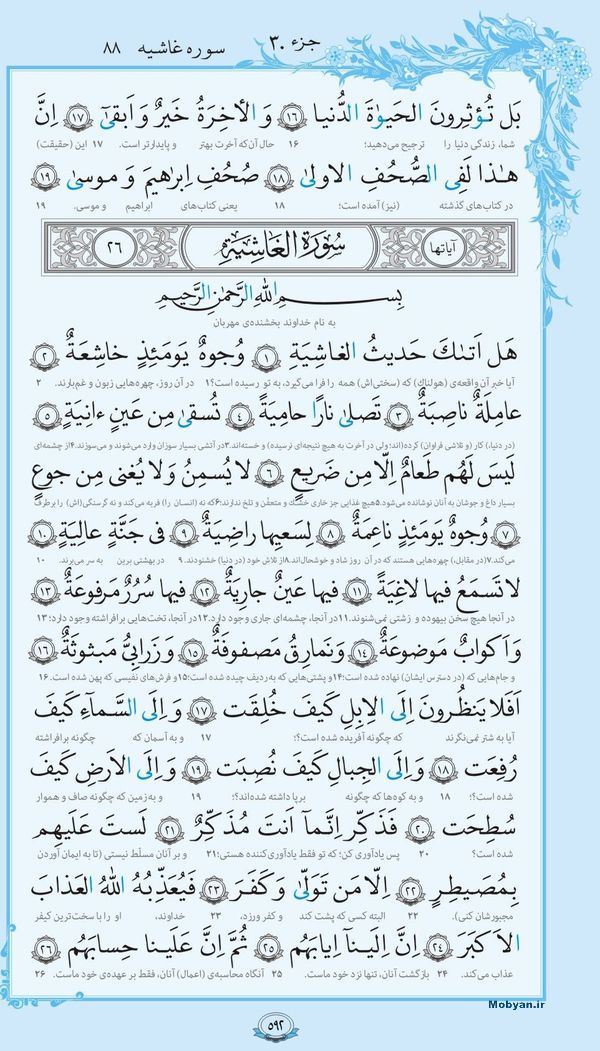 جزء ۳۰ سوره غاشیه ۸۸
بَل تُؤثِرونَ الحَیوٰةَ الدُّنیا ۱۶ وَ الأخِرَةُ خَیرٌ وَ اَبقیٰٓ ۱۷ اِنَّ
شما، زندگی دنیا را ترجیح می‌دهید؛ ۱۶ حال آن‌که آخرت بهتر و پایدارتر است. ۱۷ این (حقیقت)
هٰذا لَفِی الصُّحُفِ الاولیٰ ۱۸ صُحُفِ اِبراهیمَ وَ موسیٰ ۱۹
در کتاب‌های گذشته (نیز) آمده است؛ ۱۸ یعنی کتاب‌های ابراهیم و موسی. ۱۹
آیاتها سُورَةُ الغَاشِیَةِ ۲۶
بِسمِ اللّٰهِ الرَّحمٰنِ الرَّحیمِ
به نام خداوند بخشنده‌ی مهربان
هَل اَتىٰكَ حَدیثُ الغاشِیَةِ ۱ وُجوهٌ یَومَئِذٍ خاشِعَةٌ ۲
آیا خبر آن واقعه‌ی (هولناک) که (سختی‌اش) همه را فرا می‌گیرد، به تو رسیده است؟ ۱ در آن روز، چهره‌هایی زبون و غم‌بارند. ۲
عامِلَةٌ ناصِبَةٌ ۳ تَصلیٰ نارًا حامِیَةً ۴ تُسقیٰ مِن عَینٍ ءانِیَةٍ ۵
(در دنیا،) کار (و تلاشی فراوان) کرده(اند؛ ولی در آخرت به هیچ نتیجه‌ای نرسیده) و خسته‌اند. ۳ در آتشی بسیار سوزان وارد می‌شوند و می‌سوزند. ۴ از چشمه‌ای
لَیسَ لَهُم طَعامٌ اِلّا مِن ضَریعٍ ۶ لا یُسمِنُ وَ لا یُغنی مِن جوعٍ
بسیار داغ و جوشان به آنان نوشانده می‌شود. ۵ هیچ غذایی جز خاری خشک و متعفّن و تلخ ندارند؛ ۶ که نه (انسان را) فربه می‌کند و نه گرسنگی(اش) را برطرف
۷ وُجوهٌ یَومَئِذٍ ناعِمَةٌ ۸ لِسَعیِها راضِیَةٌ ۹ فی جَنَّةٍ عالِیَةٍ ۱۰
می‌کند. ۷ (در مقابل،) چهره‌هایی هستند که در آن روز شاد و خوشحال‌اند. ۸ از تلاش خود (در دنیا) خشنودند. ۹ در بهشتی برین به سر می‌برند. ۱۰
لا تَسمَعُ فیها لاغِیَةً ۱۱ فیها عَینٌ جارِیَةٌ ۱۲ فیها سُرُرٌ مَرفوعَةٌ ۱۳
در آنجا هیچ سخن بیهوده و زشتی نمی‌شنوند. ۱۱ در آنجا، چشمه‌ای جاری وجود دارد. ۱۲ در آنجا، تخت‌هایی برافراشته وجود دارد؛ ۱۳
وَ اَکوابٌ مَوضوعَةٌ ۱۴ وَ نَمارِقُ مَصفوفَةٌ ۱۵ وَ زَرابِیُّ مَبثوثَةٌ ۱۶
و جام‌هایی که (در دسترس ایشان) نهاده شده است؛ ۱۴ و پشتی‌هایی که به‌ردیف چیده شده است؛ ۱۵ و فرش‌های نفیسی که پهن شده است. ۱۶
اَفَلا یَنظُرونَ اِلَی الاِبِلِ کَیفَ خُلِقَت ۱۷ وَ اِلَی السَّماۤءِ کَیفَ
آیا به شتر نمی‌نگرند که چگونه آفریده شده است؟ ۱۷ و به آسمان که چگونه برافراشته
رُفِعَت ۱۸ وَ اِلَی الجِبالِ کَیفَ نُصِبَت ۱۹ وَ اِلَی الاَرضِ کَیفَ
شده است؟ ۱۸ و به کوه‌ها که چگونه برپا داشته شده‌اند؟ ۱۹ و به زمین که چگونه صاف و هموار
سُطِحَت ۲۰ فَذَکِّر اِنَّمآ اَنتَ مُذَکِّرٌ ۲۱ لَستَ عَلَیهِم
شده است؟ ۲۰ پس یادآوری کن؛ که تو فقط یادآوری‌کننده هستی؛ ۲۱ و بر آنان مسلّط نیستی (تا به ایمان آوردن
بِمُصَیطِرٍ ۲۲ اِلّا مَن تَوَلّیٰ وَ کَفَرَ ۲۳ فَیُعَذِّبُهُ اللّٰهُ العَذابَ
مجبورشان کنی). ۲۲ البته کسی که پشت کند و کفر ورزد، ۲۳ خداوند، او را با سخت‌ترین کیفر
الاَکبَرَ ۲۴ اِنَّ اِلَینآ اِیابَهُم ۲۵ ثُمَّ اِنَّ عَلَینا حِسابَهُم ۲۶
عذاب می‌کند. ۲۴ بازگشت آنان، تنها نزد خود ماست. ۲۵ آنگاه محاسبه‌ی (اعمال) آنان، فقط بر عهده‌ی خود ماست. ۲۶
۵۹۲
Mobyan.ir